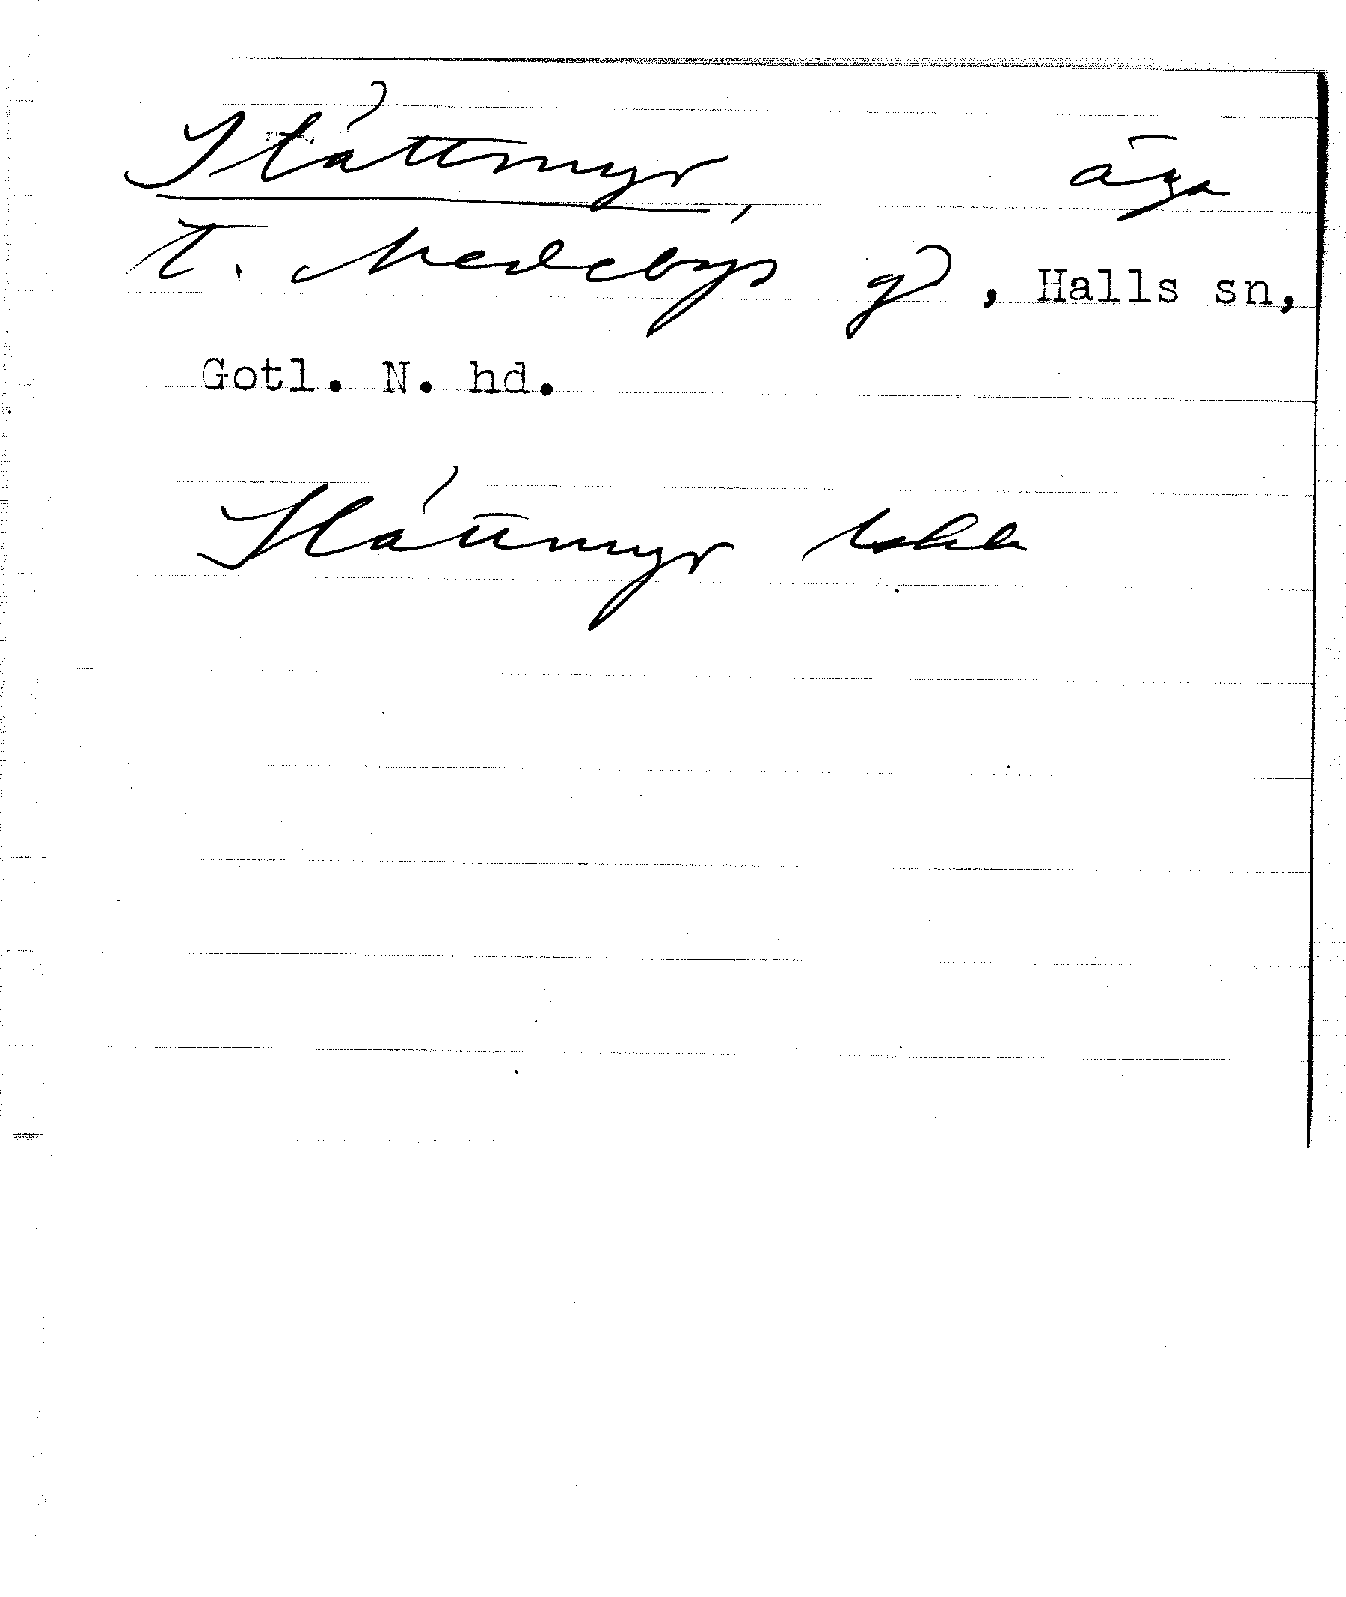 Slåttmyr, äga
t. Medebys gd, Halls sn,
Gotl. N. hd.
Slåttmyr